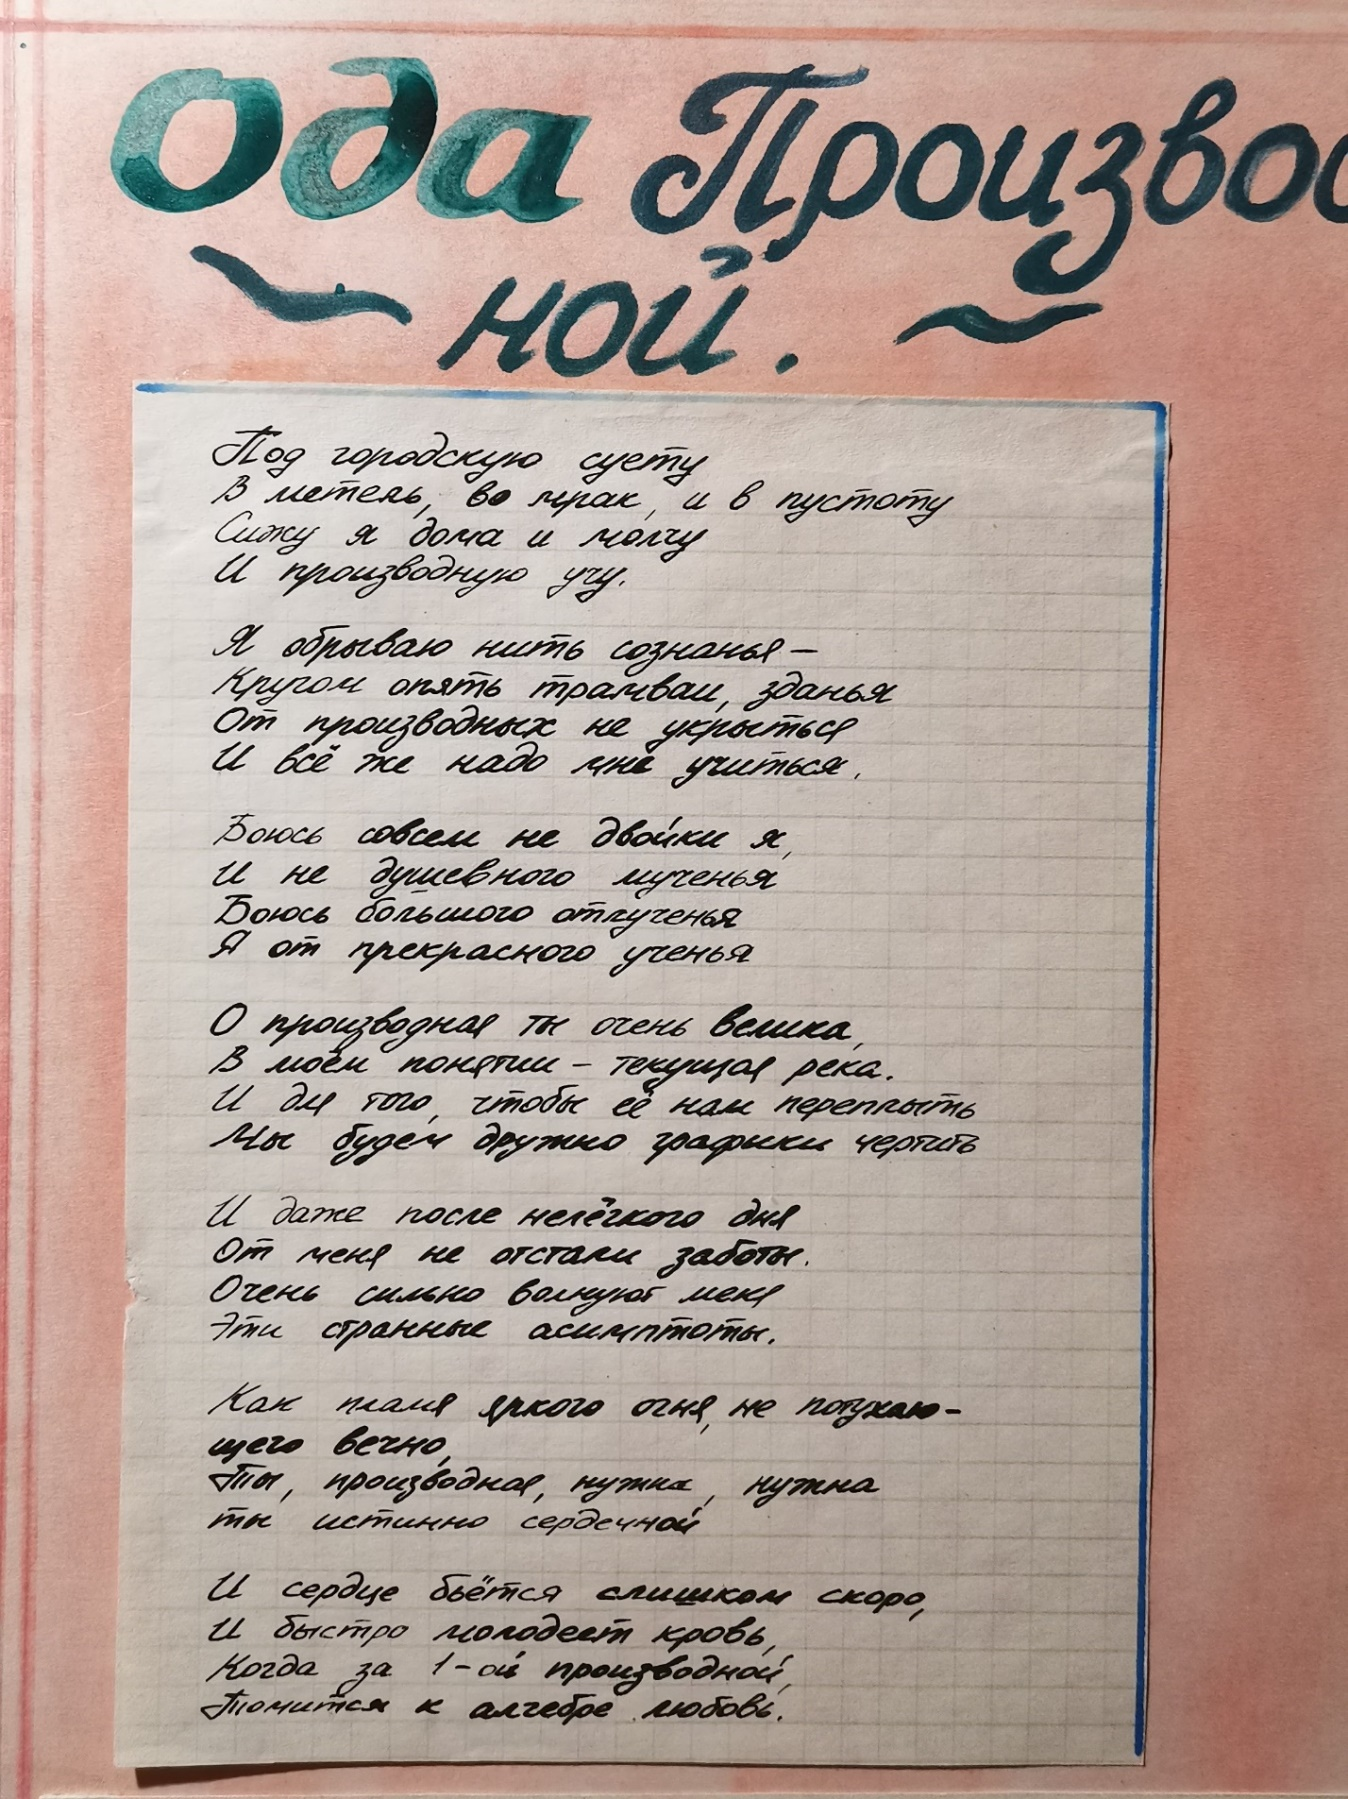 Ода Произвос
ной.
Под городскую суету
В метель, во мрак, и в пустоту
Сижу я дома и молчу
И производную учу.
Я обрываю нить сознанья –
Кругом опять трамваи, зданья
От производных не укрыться
И всё же надо мне учиться.
Боюсь совсем не двойки я,
И не душевного мученья
Боюсь большого отлученья
Я от прекрасного ученья
О производная ты очень велика,
В моём понятии – текущая река.
И для того, чтобы её нам переплыть
Мы будем дружно графики чертить
И даже после нелёгкого дня
От меня не отстали заботы.
Очень сильно волнуют меня
Эти странные асимптоты.
Как пламя яркого огня, не потухаю-
щего вечно,
Ты, производная, нужна, нужна
ты истинно сердечной
И сердце бьётся слишком скоро,
И быстро молодеет кровь,
Когда за 1-ой производной,
Томится к алгебре любовь.